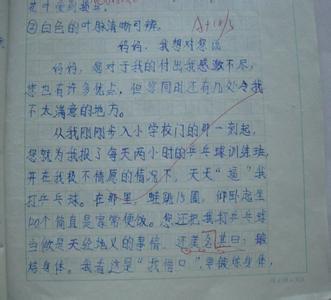 ②白色的叶脉清晰可辨。
妈妈，我想对您说
妈妈，您对于我的付出我感激不尽，
您也有许多优点，但您同时还有几处令我
不太满意的地方。
从我刚刚步入小学校门的那一刻起，
您就为我报了每天两小时的乒乓球训练班，
并在我极不情愿的情况下，天天“逼”我
打乒乓球。在那里，蛙跳15圈，仰卧起坐
120个简直是家常便饭。您还把我打乒乓球
当做是天经地义的事情，还美名其曰：锻
炼身体。我看这是“找借口”，单锻炼身体，